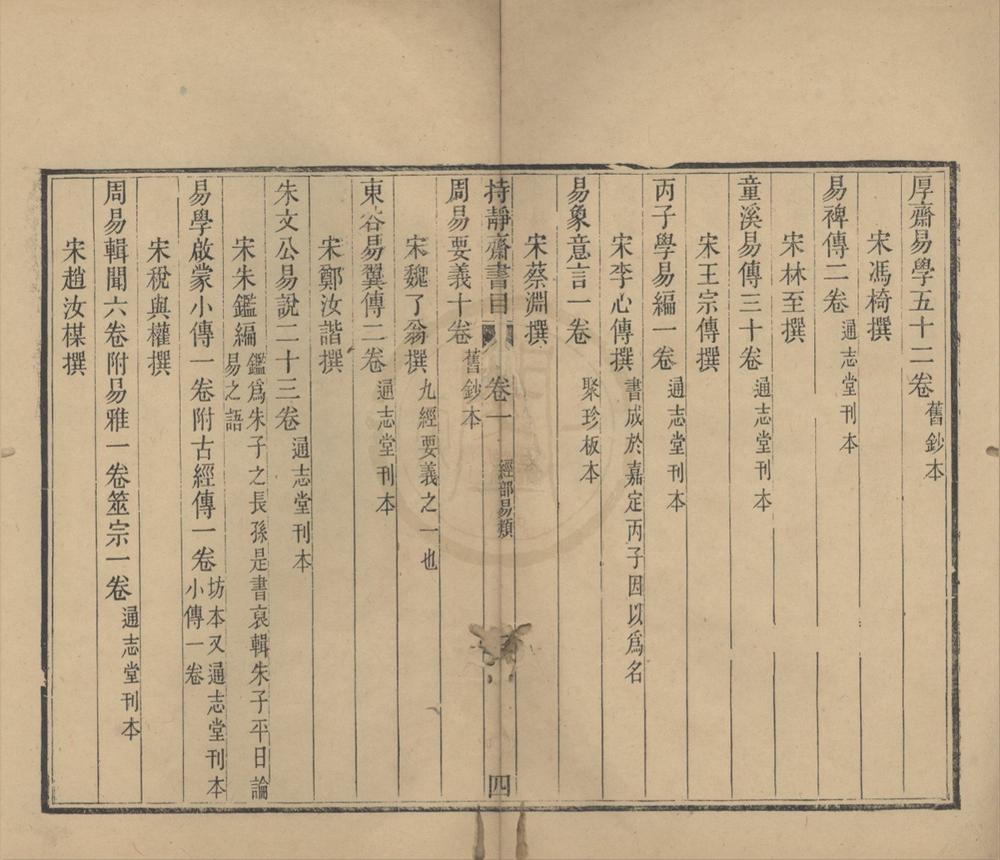 厚齋易學五十二卷舊鈔本
宋馮椅撰
易裨傳二卷通志堂刊本
宋林至撰
童溪易傳三十卷通志堂刊本
宋王宗傳撰
丙子學易編一卷通志堂刊本
宋李心傳撰書成於嘉定丙子因以爲名
易象意言一卷聚珍板本
宋蔡淵撰
持靜齋書目 卷一 經部易類 四
周易要義十卷舊鈔本
宋魏了翁撰九經要義之一也
東谷易翼傳二卷通志堂刊本
宋鄭汝諧撰
朱文公易說二十三卷通志堂刊本
宋朱鑑編鑑爲朱子之長孫是書裒輯朱子平日論
易之語
易學啟蒙小傳一卷附古經傳一卷坊本又通志堂刊本
小傳一卷
宋稅與權撰
周易輯聞六卷附易雅一卷筮宗一卷通志堂刊本
宋趙汝楳撰